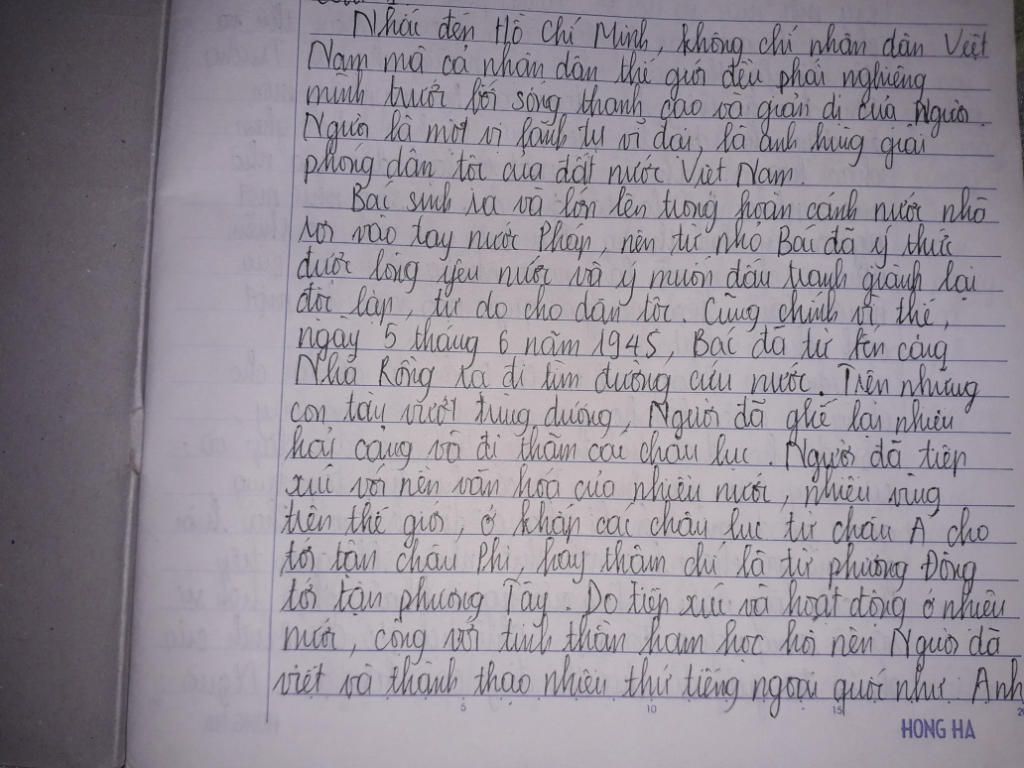 Nhắc đến Hồ Chí Minh, không chỉ nhân dân Việt
Nam mà cả nhân dân thế giới đều phải nghiêng
mình trước lối sống thanh cao và giản dị của Người.
Người là một vị lãnh tụ vĩ đại, là anh hùng giải
phóng dân tộc của đất nước Việt Nam.
Bác sinh ra và lớn lên trong hoàn cảnh nước nhà
rơi vào tay nước Pháp, nên từ nhỏ Bác đã ý thức
được lòng yêu nước và ý muốn đấu tranh giành lại
độc lập, tự do cho dân tộc. Cũng chính vì thế,
ngày 5 tháng 6 năm 1945, Bác đã từ bến cảng
Nhà Rồng ra đi tìm đường cứu nước. Trên những
con tàu vượt trùng dương, Người đã ghé lại nhiều
hải cảng và đi thăm các châu lục. Người đã tiếp
xúc với nền văn hoá của nhiều nước, nhiều vùng
trên thế giới, ở khắp các châu lục từ châu Á cho
tới tận châu Phi, hay thậm chí là từ phương Đông
tới tận phương Tây. Do tiếp xúc và hoạt động ở nhiều
nước, cộng với tinh thần ham học hỏi nên Người đã
viết và thành thạo nhiều thứ tiếng ngoại quốc như Anh
5 10 15 20
HONG HA